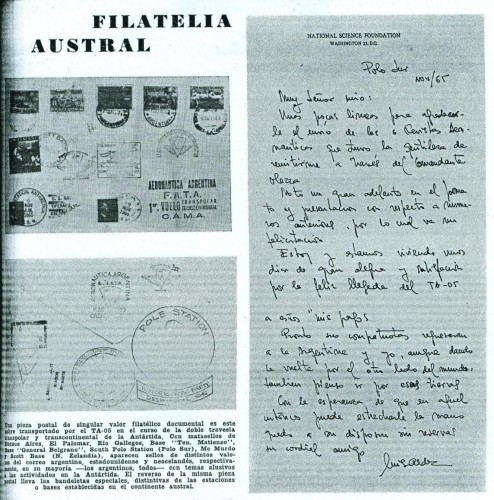 FILATELIA
AUSTRAL
AERONAUTICA ARGENTINA
F.A.T.A.
1er. VUELO TRANSPOLAR
C.A.M.A.
AERONAUTICA ARGENTINA
POLE STATION
pieza postal de singular valor filatélico documental es este
sobre transportado por el TA-05 en el curso de la doble travesía
transpolar y transcontinental de la Antártida. Con matasellos de
Buenos Aires, El Palomar, Río Gallegos, Base "Ten. Matienzo",
Base "General Belgrano", South Pole Station (Polo Sur), Mc Murdo
y Scott Base (N. Zelandia), aparecen sellos de distintos valores
del correo argentino, estadounidense y neocelandés, respectivamente,
en su mayoría —los argentinos, todos— con temas alusivos
a las actividades en la Antártida. El reverso de la misma pieza
postal lleva las banderetas especiales, distintivas de las estaciones
o bases establecidas en el continente austral.
NATIONAL SCIENCE FOUNDATION
WASHINGTON 25, D.C.
Polo Sur
Nov/65
Muy Señor mio:
Unas pocas lineas para agradecer-
le el envio de las 6 Revistas Aero-
nauticas que tuvo la gentileza de
remitirme a traves del Comandante
Olezza
Noto un gran adelanto en el forma-
to y presentacion con respecto a nume-
ros anteriores, por lo cual va mi
felicitacion
Estoy y estamos viviendo unos
dias de gran alegria y satisfacción
por la feliz llegada del TA-05
a estos "mis pagos"
Pronto sus compatriotas regresaran
a la Argentina y yo, aunque dando
la vuelta por el otro lado del mundo,
tambien pienso ir por esas tierras
Con la esperanza de que en aquel
entonces pueda estrecharle la mano
quedo a su disposicion sin reservas
su cordial amigo